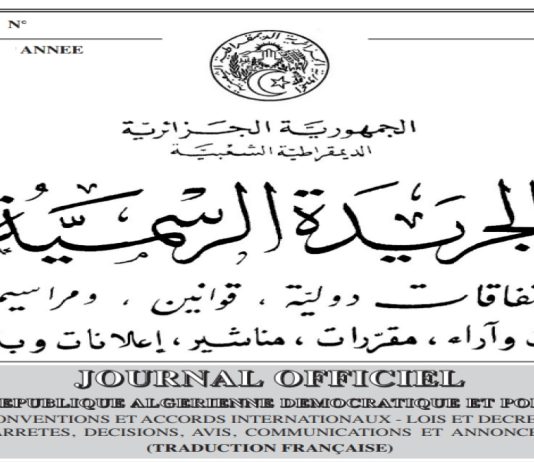 N°
ANNEE
الجمهورية الجزائرية
الديمقراطية الشعبية
الجريدة الرسمية
تفاقات دولية ، قوانين ، ومراسيم
وآراء ، مقررات ، مناشير ، إعلانات وب
JOURNAL OFFICIEL
REPUBLIQUE ALGERIENNE DEMOCRATIQUE ET PO
ONVENTIONS ET ACCORDS INTERNATIONAUX - LOIS ET DECRE
ARRETES, DECISIONS, AVIS, COMMUNICATIONS ET ANNONCE
(TRADUCTION FRANÇAISE)